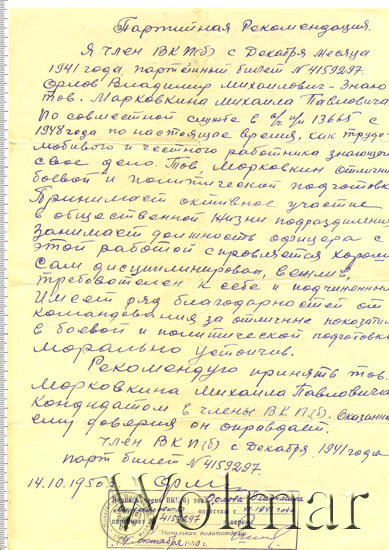 Партийная Рекомендация.
Я член ВКП(б) с Декабря месяца
1941 года, партейный билет №4159297
Орлов Владимир Михайлович - Знаю
тов. Морковкина Михаила Павловича
По совместной службе в в/ч п/п 13665 с
1948 года по настоящее время, как трудо-
любивого и честного работника знающего
свое дело. Тов. Морковкин отличник
боевой и политической подготовки
Принимает активное участие
в общественной жизни подразделения
Занимает должность офицера с
этой работой справляется хорошо
Сам дисциплинирован, вежлив,
требователен к себе и подчиненным
Имеет ряд благодарностей от
командования за отличные показатели
в боевой и политической подготовке
морально устойчив.
Рекомендую принять тов.
Морковкина Михаила Павловича
Кандидатом в члены ВКП(б). Оказанное
ему доверия он оправдает.
Член ВКП(б) с Декабря 1941 года
парт билет №4159297
14.10.1950г.
члена ВКП(б) тов. Орлова Владимира
Михайловича с XII 1941 года
партбилет № 4159297
Начальник политотдела
октября 1950 г.
Wolmar